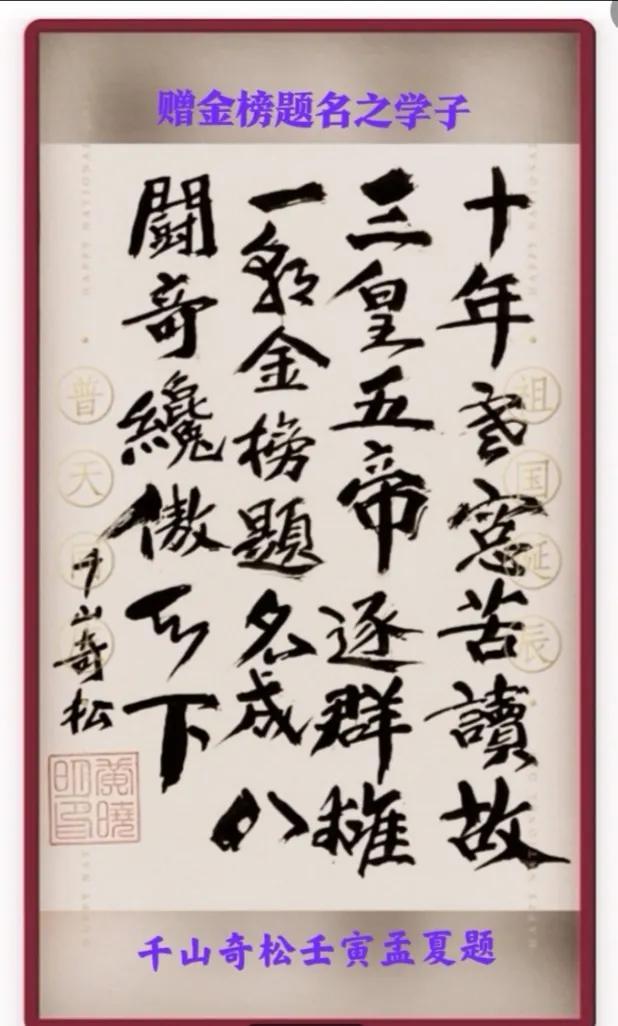 赠金榜题名之学子
十年寒窓苦讀故
三皇五帝逐群雄
一朝金榜題名成以
鬪奇纔傲天下
千山奇松
黃曉明印
祖国诞辰
普天同
千山奇松壬寅孟夏题